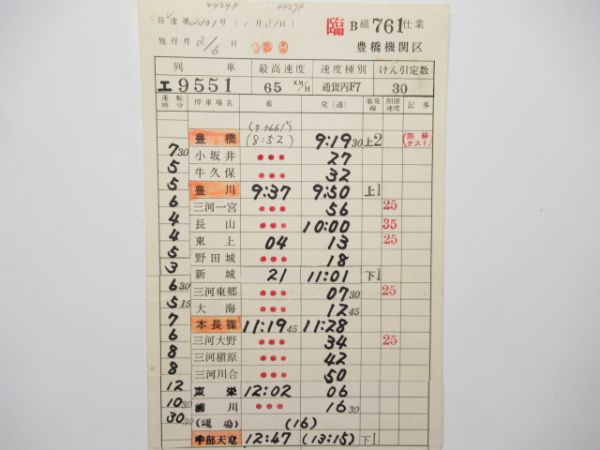 4424デ 4427デ
達第2201号(1月31日)
施行月 2/6日
臨 B組761仕業
豊橋機関区
列車 最高速度 速度種別 けん引定数
工9551 65 KM/H 通貨丙F7 30
運転時分 停車場名 着 発(通) 着発線 制限速度 記事
豊橋 (8:52) 9:19 30 上2 (無線テスト)
7 30 小坂井 ・・・ 27
5 牛久保 ・・・ 32
5 豊川 9:37 9:50 上1
6 三河一宮 ・・・ 56 25
4 長山 ・・・ 10:00 35
4 東上 04 13 25
5 野田城 ・・・ 18
3 新城 21 11:01 下1
6 30 三河東郷 ・・・ 07 30 25
5 15 大海 ・・・ 12 45
7 本長篠 11:19 45 11:28
6 三河大野 ・・・ 34 25
8 三河槇原 ・・・ 42
8 三河川合 ・・・ 50
12 東栄 12:02 06
10 30 浦川 ・・・ 16 30
30 30 (現場) (16)
中部天竜 12:47 (13:15) 下1